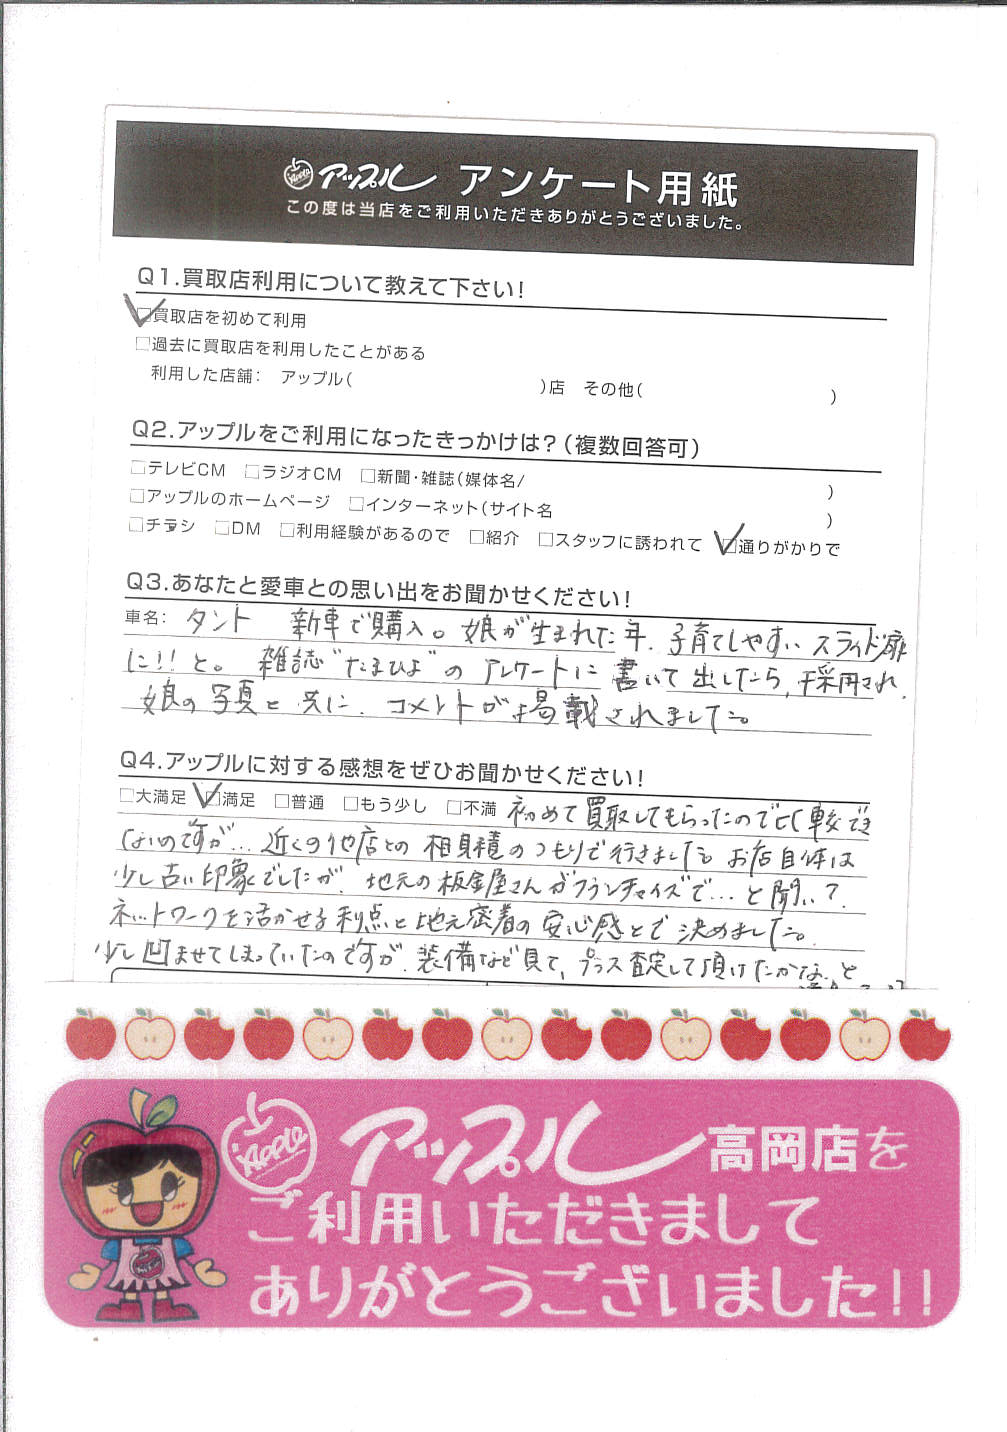 Apple アップル アンケート用紙
この度は当店をご利用いただきありがとうございました。
Q1.買取店利用について教えて下さい!
☑買取店を初めて利用
□過去に買取店を利用したことがある
利用した店舗: アップル( )店 その他( )
Q2.アップルをご利用になったきっかけは?(複数回答可)
□テレビCM □ラジオCM □新聞・雑誌(媒体名/ )
□アップルのホームページ □インターネット(サイト名 )
□チラシ □DM □利用経験があるので □紹介 □スタッフに誘われて ☑通りがかりで
Q3.あなたと愛車との思い出をお聞かせください!
車名: タント 新車で購入。娘が生まれた年、子育てしやすいスライド扉
に!!と。雑誌"たまひよ"のアンケートに書いて出したら、採用され、
娘の写真と共に、コメントが掲載されました。
Q4.アップルに対する感想をぜひお聞かせください!
□大満足 ☑満足 □普通 □もう少し □不満 初めて買取してもらったので比較でき
ないのですが…近くの他店との相見積のつもりで行きました。お店自体は
少し古い印象でしたが、地元の板金屋さんがフランチャイズで…と聞いて、
ネットワークを活かせる利点と地元密着の安心感とで決めました。
少し凹ませてしまっていたのですが、装備など見て、プラス査定して頂けたかな、と
Apple アップル 高岡店を
ご利用いただきまして
ありがとうございました!!